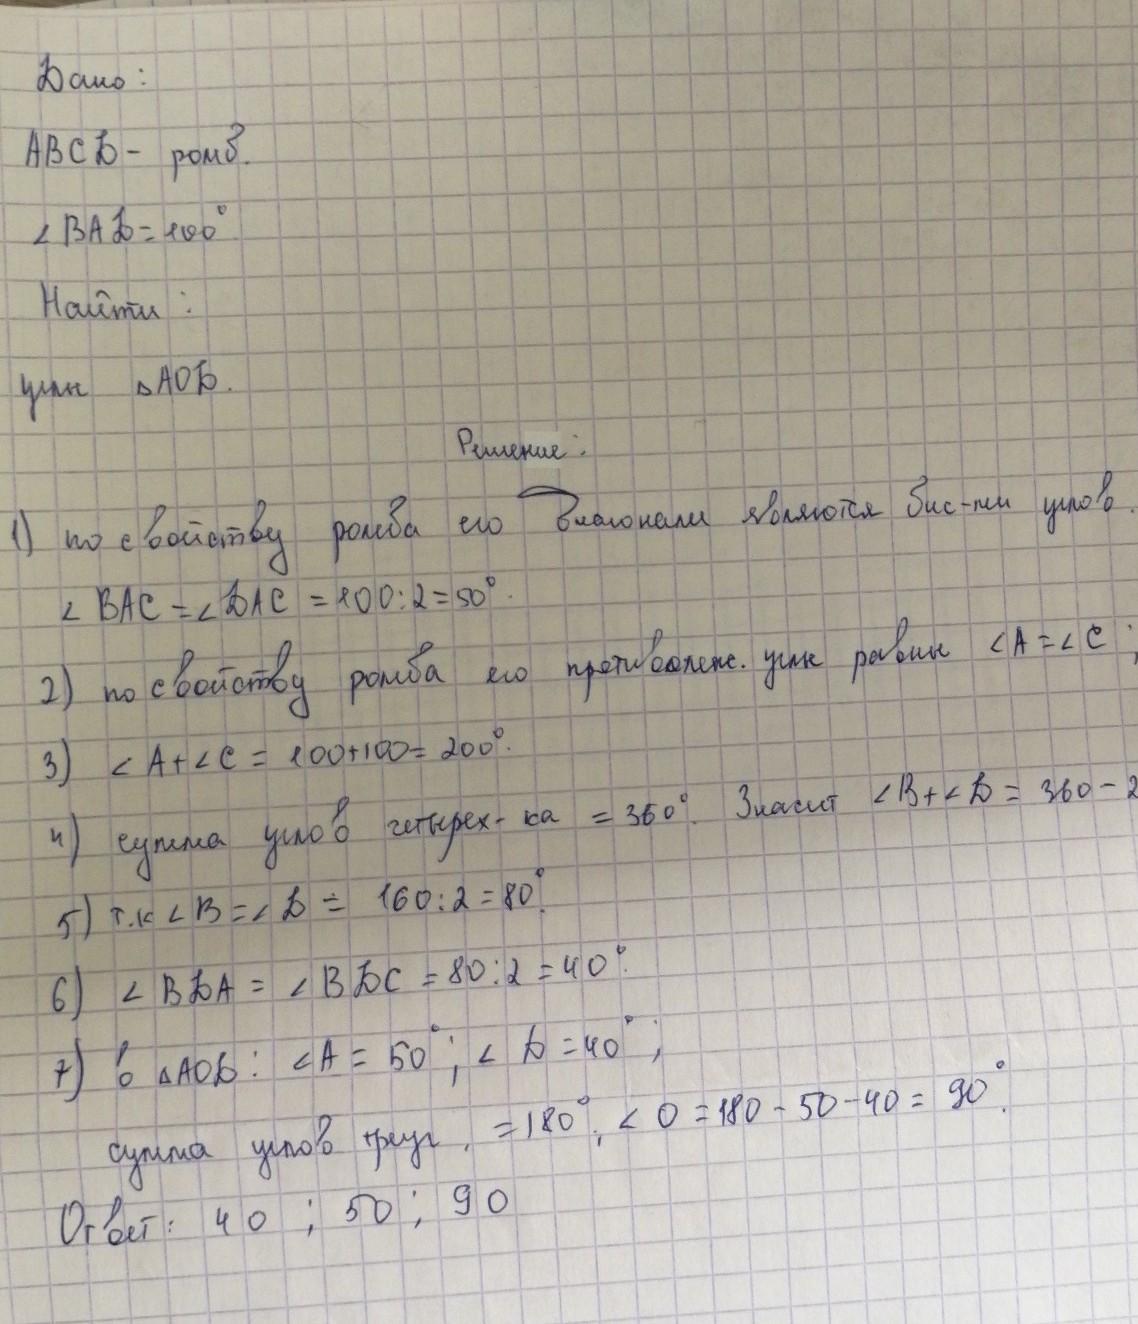 Дано:
ABCD - ромб.
∠BAD = 100°
Найти:
углы △AOD.
Решение:
1) по свойству ромба его диагонали являются бис-ми углов.
∠BAC = ∠DAC = 100:2 = 50°.
2) по свойству ромба его противолеж. углы равны ∠A = ∠C;
3) ∠A + ∠C = 100+100 = 200°.
4) сумма углов четырех-ка = 360°. Значит ∠B + ∠D = 360 - 2
5) т.к ∠B = ∠D = 160:2 = 80°.
6) ∠BDA = ∠BDC = 80:2 = 40°.
7) в △AOD: ∠A = 50°; ∠D = 40°;
сумма углов треуг. = 180°, ∠O = 180 - 50 - 40 = 90°.
Ответ: 40; 50; 90